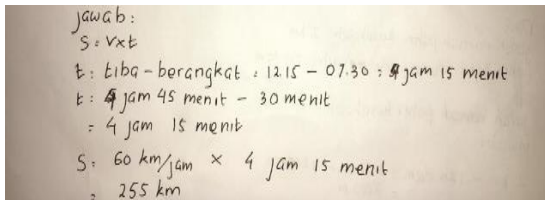 Jawab:
S = v x t
t = tiba - berangkat = 12.15 - 07.30 = 4 jam 15 menit
t = 4 jam 45 menit - 30 menit
= 4 jam 15 menit
S = 60 km/jam x 4 jam 15 menit
= 255 km